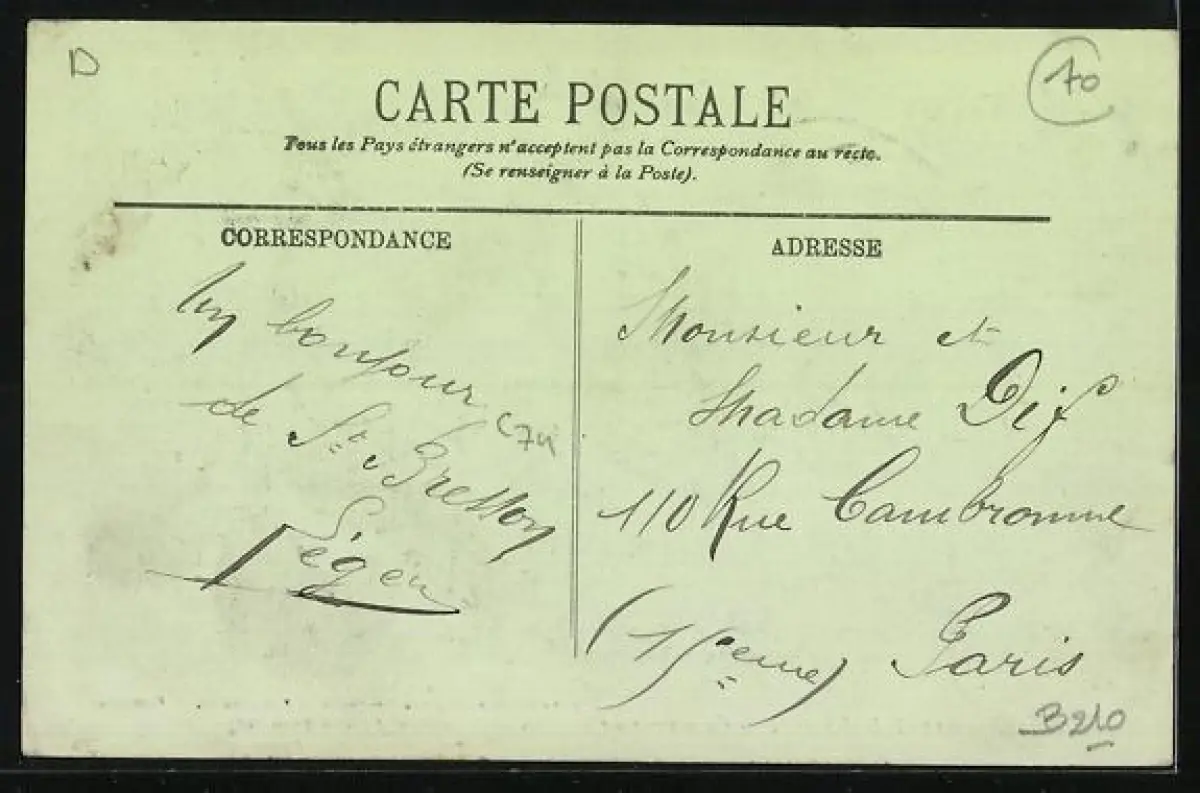 D
70
CARTE POSTALE
Tous les Pays étrangers n'acceptent pas la Correspondance au recto.
(Se renseigner à la Poste).
CORRESPONDANCE
ADRESSE
Un bonjour
de St Bresson
Monsieur et
Madame Dif
110 Rue Cambronne
(15eme) Paris
B210